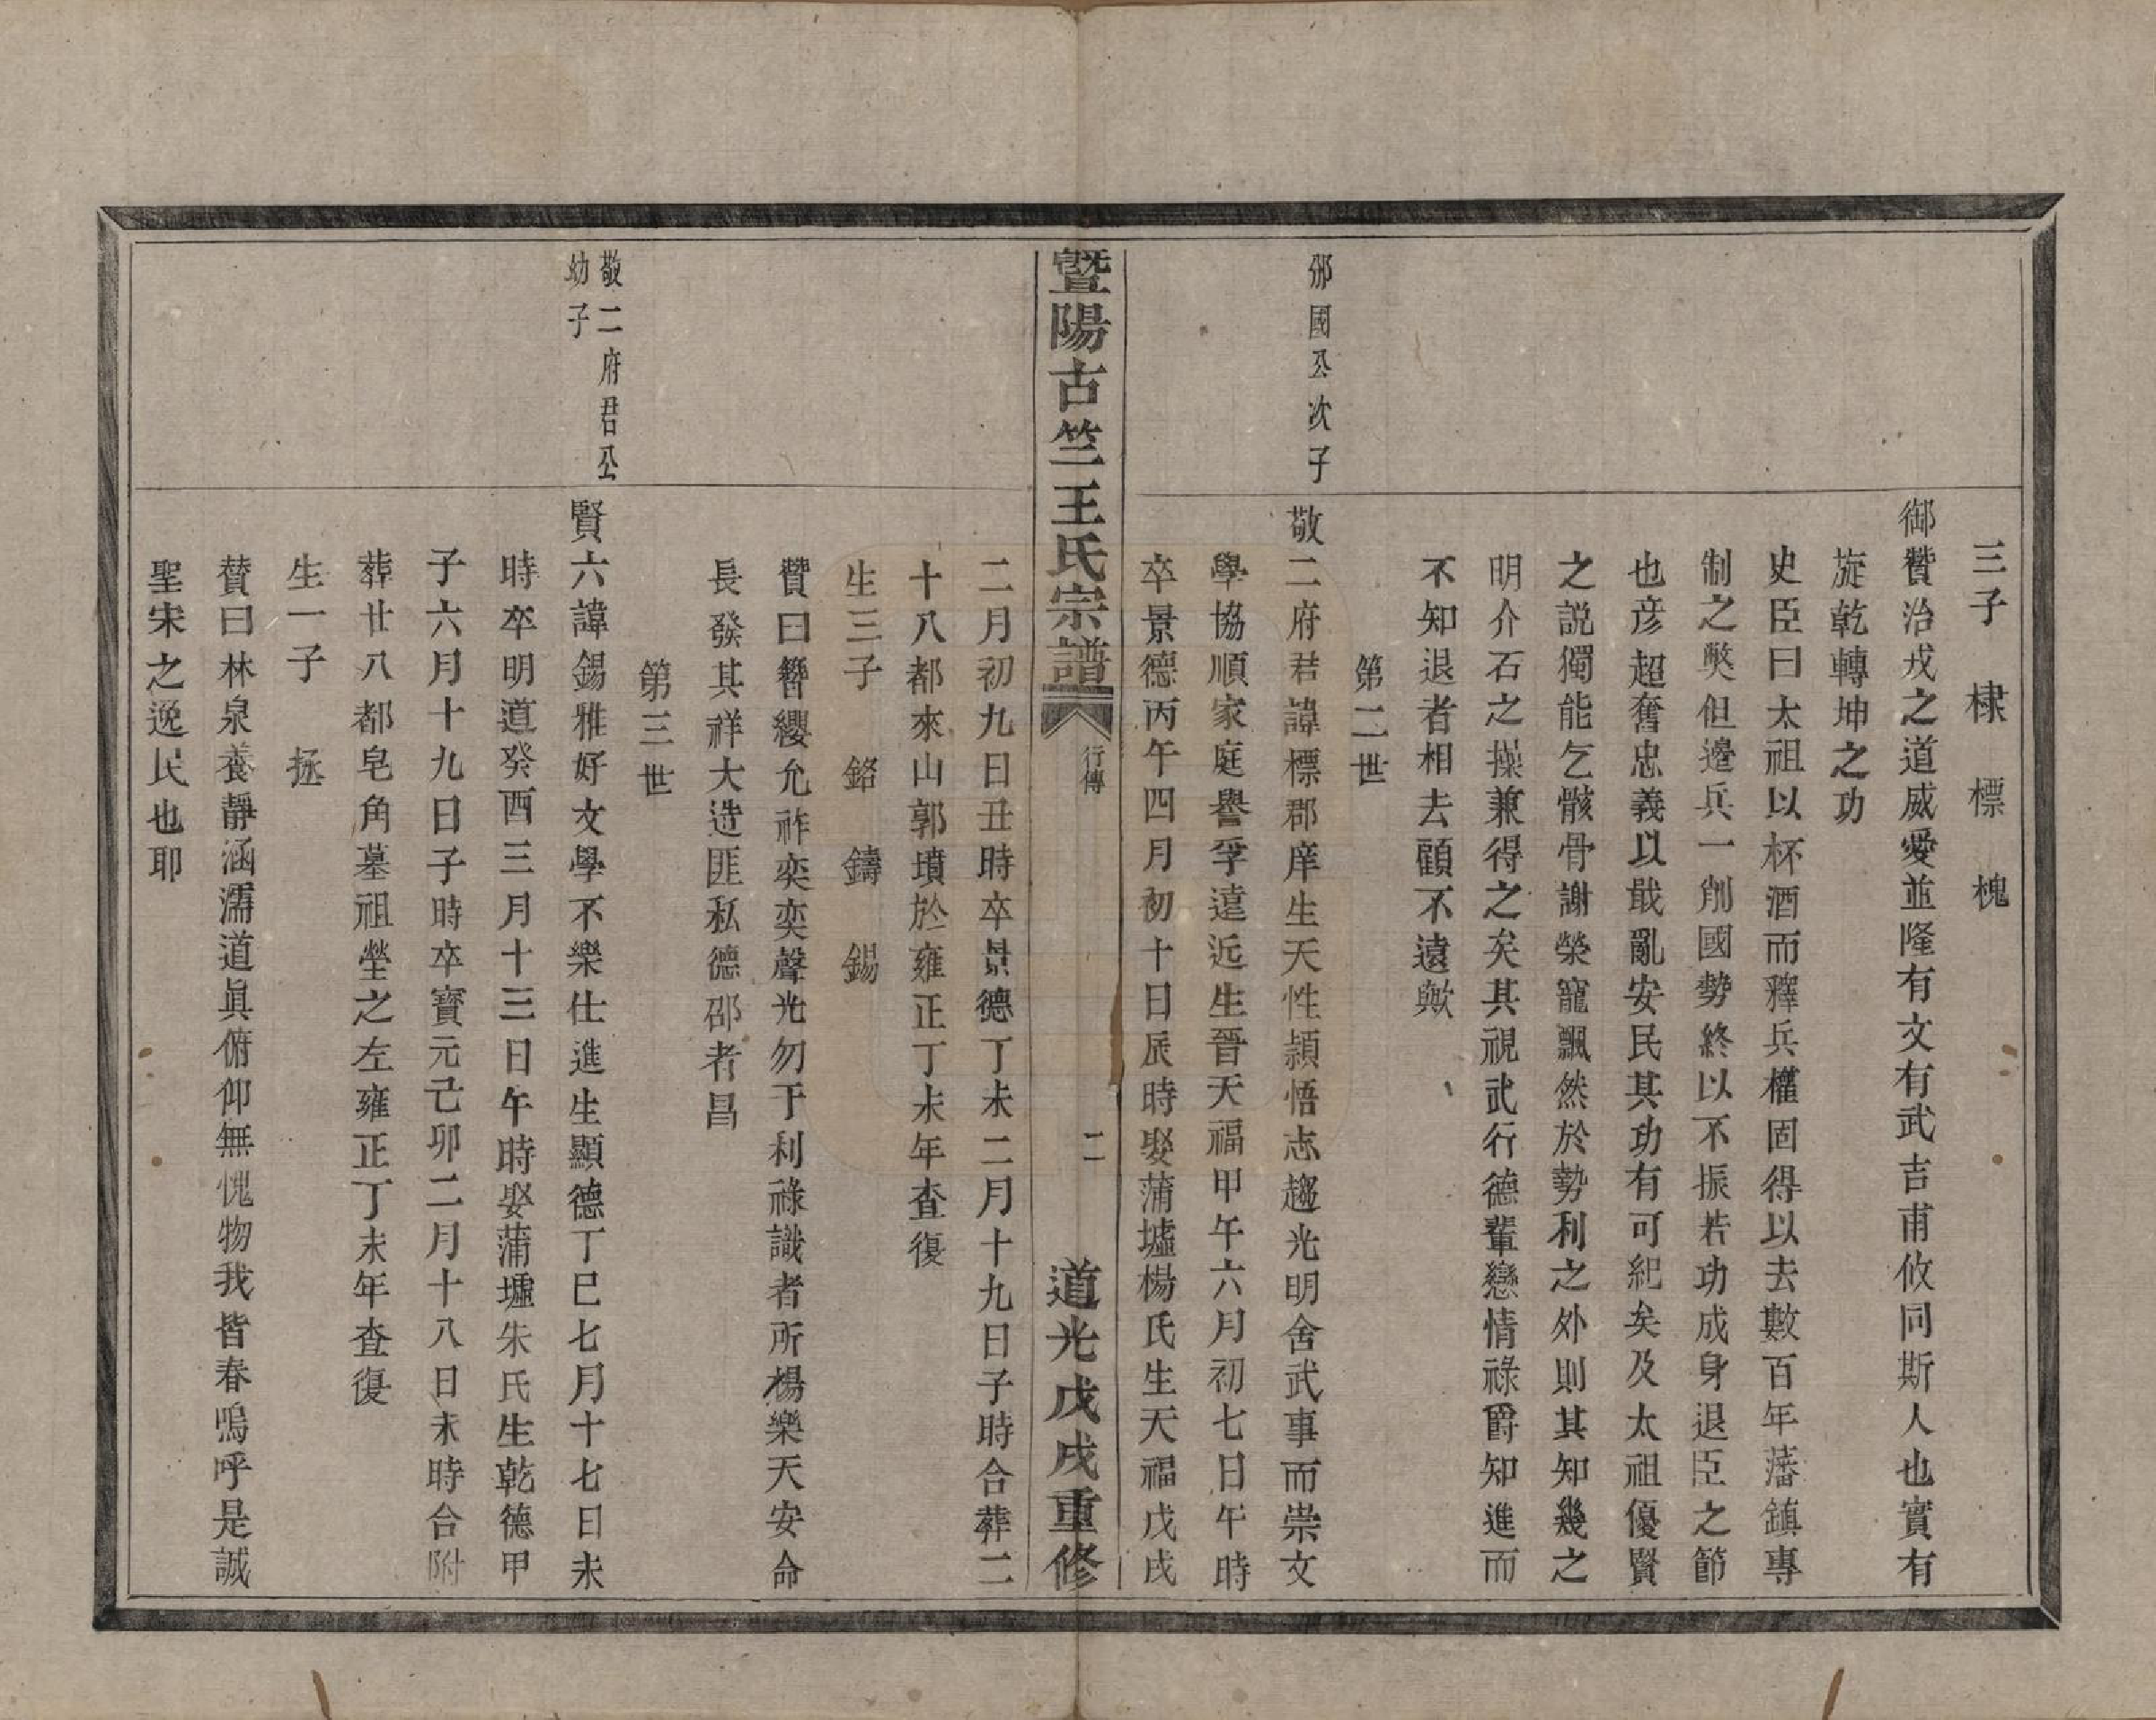 三子 棣 標 槐
御贊治戎之道威愛並隆有文有武吉甫攸同斯人也實有
旋乾轉坤之功
史臣曰太祖以杯酒而釋兵權固得以去數百年藩鎮專
制之獘但邊兵一削國勢終以不振若功成身退臣之節
也彥超奮忠義以戡亂安民其功有可紀矣及太祖優賢
之說獨能乞骸骨謝榮寵飄然於勢利之外則其知幾之
明介石之操兼得之矣其視武行德輩戀情祿爵知進而
不知退者相去顧不遠歟
第二世
邠國公次子
敬二府君諱標郡庠生天性頴悟志趨光明舍武事而崇文
學協順家庭譽孚遠近生晉天福甲午六月初七日午時
卒景德丙午四月初十日辰時娶蒲墟楊氏生天福戊戌
暨陽古竺王氏宗譜 行傳 二 道光戊戌重修
二月初九日丑時卒景德丁未二月十九日子時合葬二
十八都來山郭墳於雍正丁未年查復
生三子 銘 鑄 錫
贊曰簪纓允祚奕奕聲光勿于利祿識者所楊樂天安命
長發其祥大造匪私德邵者昌
第三世
敬二府君公
幼子
賢六諱錫雅好文學不樂仕進生顯德丁巳七月十七日未
時卒明道癸酉三月十三日午時娶蒲墟朱氏生乾德甲
子六月十九日子時卒寶元己卯二月十八日未時合附
葬廿八都皂角墓祖塋之左雍正丁未年查復
生一子 拯
贊曰林泉養靜涵濡道眞俯仰無愧物我皆春嗚呼是誠
聖宋之逸民也耶